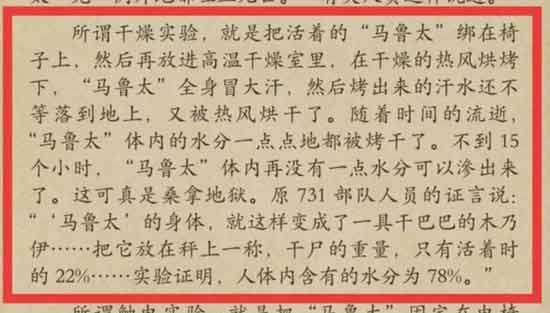 所谓干燥实验，就是把活着的“马鲁太”绑在椅
子上，然后再放进高温干燥室里，在干燥的热风烘烤
下，“马鲁太”全身冒大汗，然后烤出来的汗水还不
等落到地上，又被热风烘干了。随着时间的流逝，
“马鲁太”体内的水分一点点地都被烤干了。不到 15
个小时，“马鲁太”体内再没有一点水分可以渗出来
了。这可真是桑拿地狱。原 731 部队人员的证言说：
“‘马鲁太’的身体，就这样变成了一具干巴巴的木乃
伊……把它放在秤上一称，干尸的重量，只有活着时
的 22%……实验证明，人体内含有的水分为 78%。”
所谓触电实验，就是把“马鲁太”固定在电椅